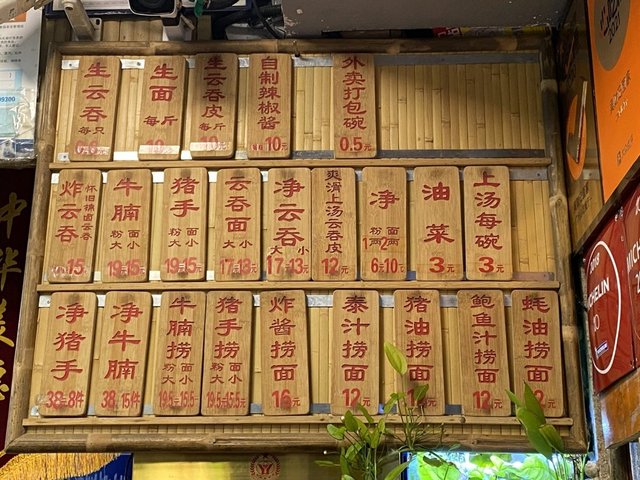 生云吞 每只
生面 每斤
生云吞皮 每斤 10
自制辣椒酱 10元
外卖打包碗 0.5元
炸云吞 怀旧锦卤云吞 15元
牛腩 粉面 大小 19 15元
猪手 粉面 大小 19 15元
云吞面 大小 17 13元
净云吞 大小 17 13元
爽滑上汤云吞皮 12元
净粉面 1两 2两 6元 10元
油菜 3元
上汤每碗 3元
净猪手 38元 8件
净牛腩 38元 15件
牛腩捞粉面 大小 19.5 15.5元
猪手捞粉面 大小 19.5 15.5元
炸酱捞面 16元
泰汁捞面 12元
猪油捞面
鲍鱼汁捞面 12元
蚝油捞面
中华美
MICHELIN